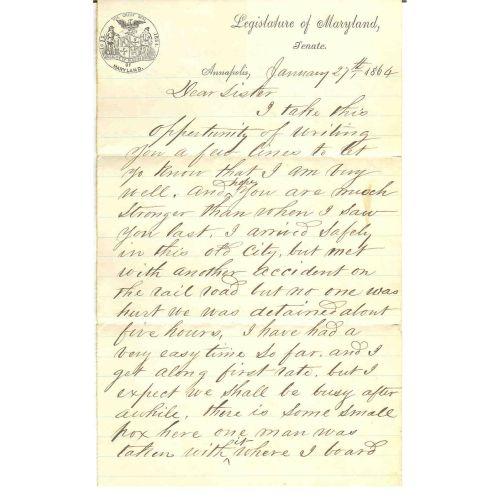 Legislature of Maryland,
Senate.
MARYLAND.
Annapolis, January 27th 1864
Dear Sister
I take this
opportunity of writing
you a few lines to let
yo know that I am very
well. and hope you are much
stronger than when I saw
you last. I arrived safely
in this old city, but met
with another accident on
the rail road but no one was
hurt we was detained about
five hours, I have had a
very easy time so far. and I
get along first rate. but I
expect we shall be busy after
awhile. there is some small
pox here one man was
taken with it where I board